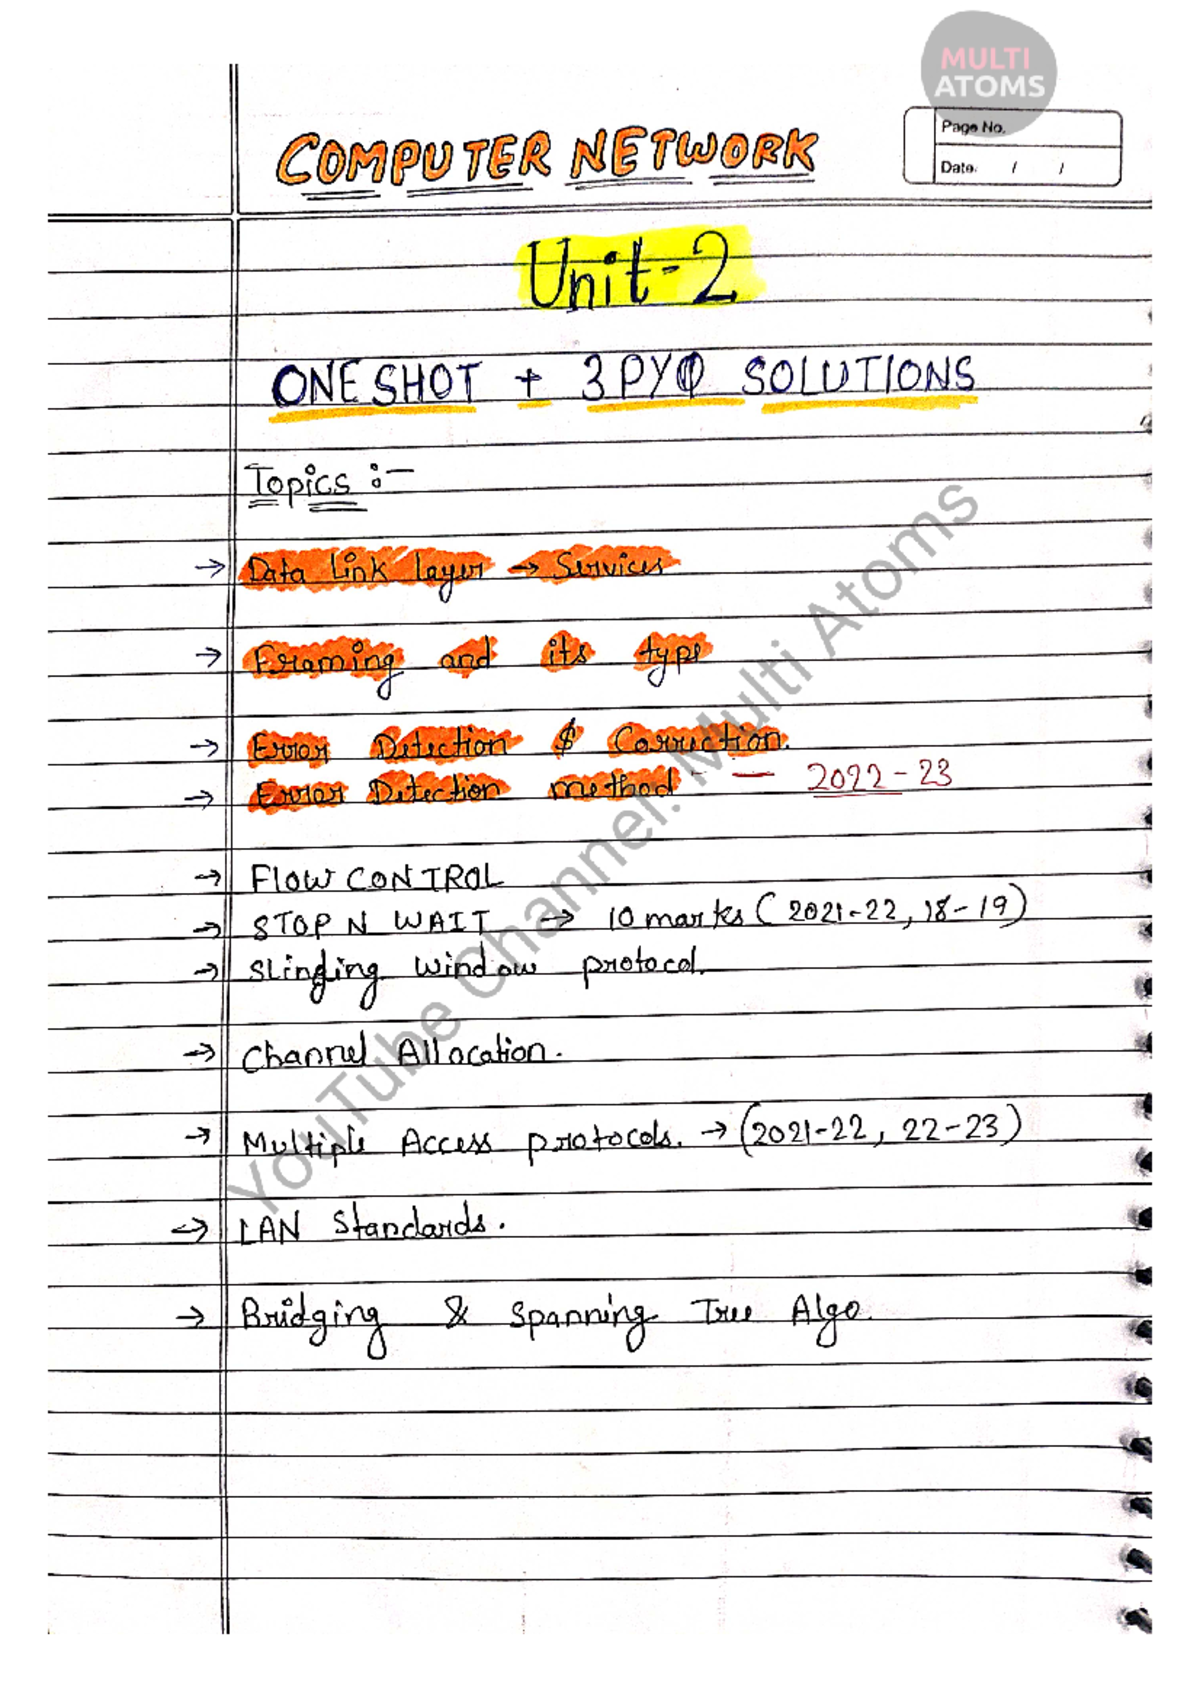 MULTI
ATOMS
Page No.
Date. / /
COMPUTER NETWORK
Unit-2
ONE SHOT + 3 PYQ SOLUTIONS
Topics :-
→ Data Link layer → Services
→ Framing and its type
→ Error Detection & Correction.
→ Error Detection method - — 2022-23
→ FLOW CONTROL
→ STOP N WAIT → 10 marks (2021-22, 18-19)
→ Slinding window protocol.
→ Channel Allocation.
→ Multiple Access protocols. → (2021-22, 22-23)
→ LAN Standards.
→ Bridging & Spanning Tree Algo.
YouTube Channel: Multi Atoms